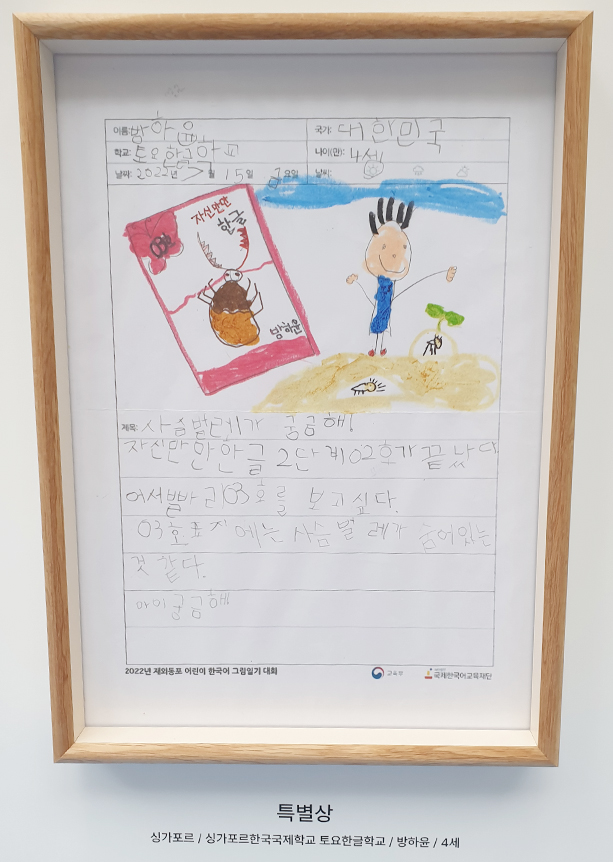 이름: 방하윤
국가: 대한민국
학교: 토요한글학교
나이(만): 4세
날짜: 2022년 7월 15일 금요일
날씨:
자신만만
한글
03
방하윤
제목: 사슴벌레가 궁금해!
자신만만 한글 2단계 02호가 끝났다
어서빨리 03호를 보고싶다.
03호표지에는 사슴벌레가 숨어있는
것 같다.
아이궁금해
2022년 재외동포 어린이 한국어 그림일기 대회
교육부
국제한국어교육재단
특별상
싱가포르 / 싱가포르한국국제학교 토요한글학교 / 방하윤 / 4세